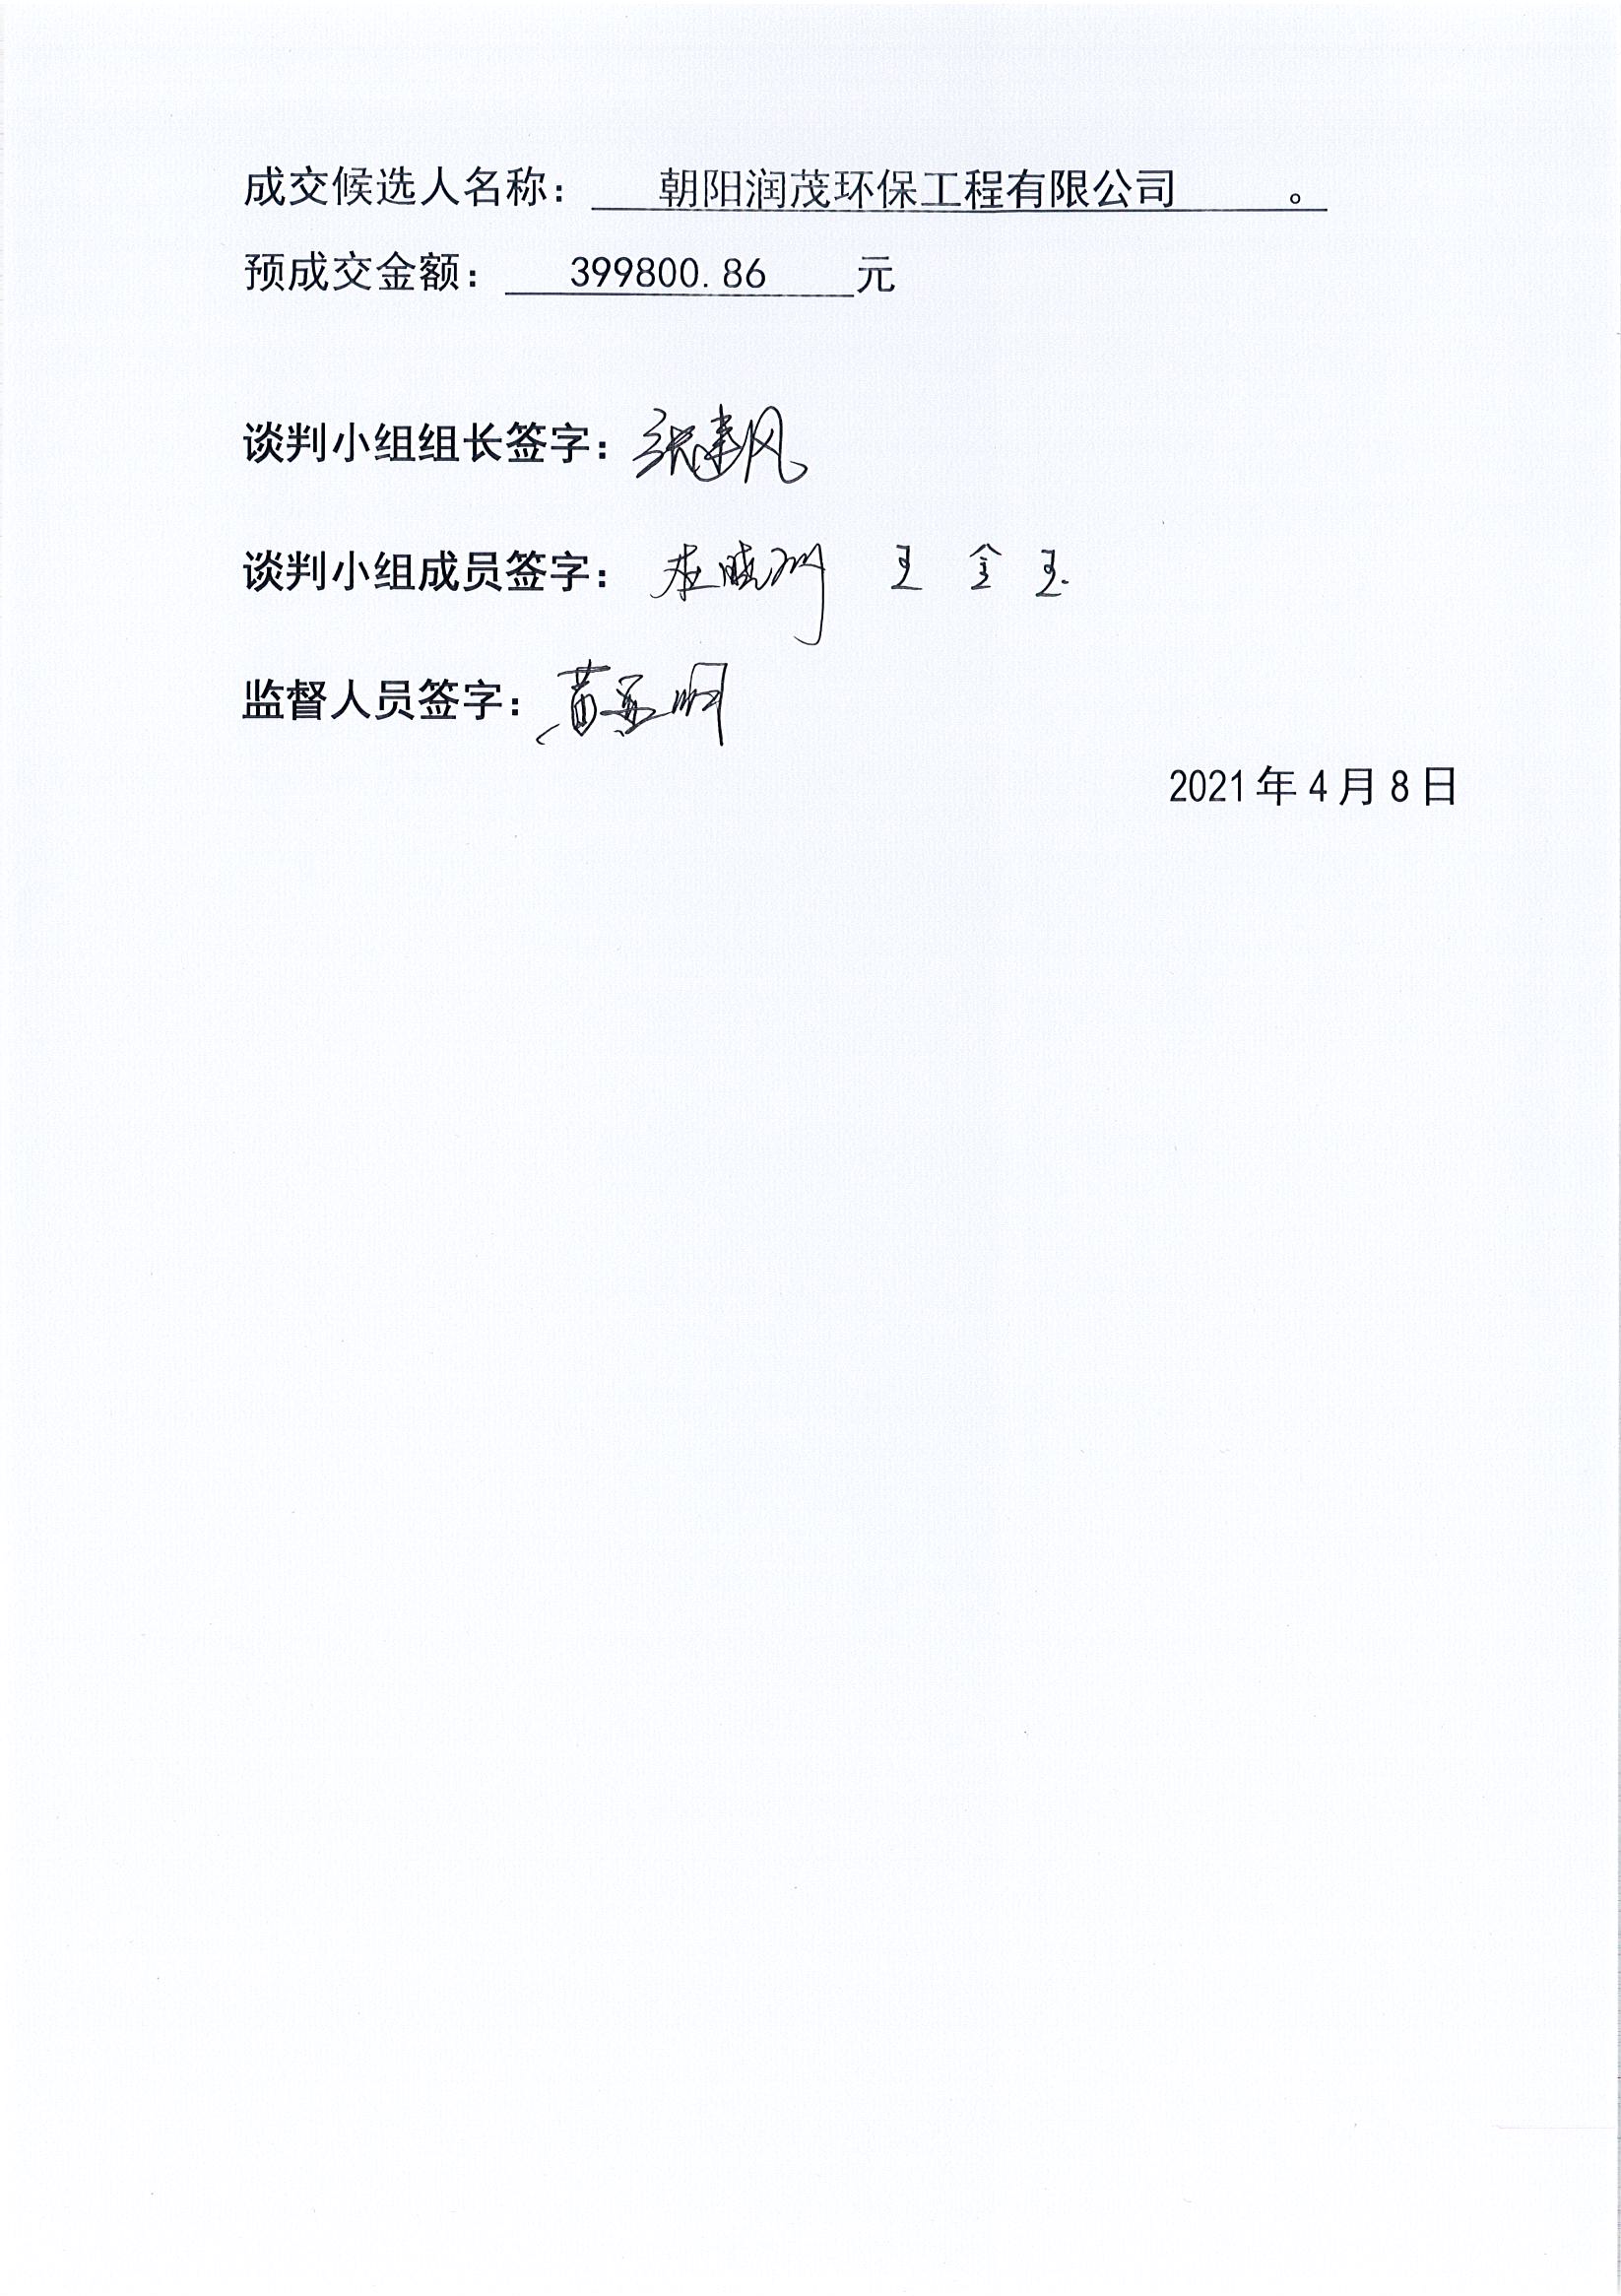 成交候选人名称： 朝阳润茂环保工程有限公司 。
预成交金额： 399800.86 元
谈判小组组长签字：张建风
谈判小组成员签字： 王金玉
监督人员签字：
2021年4月8日